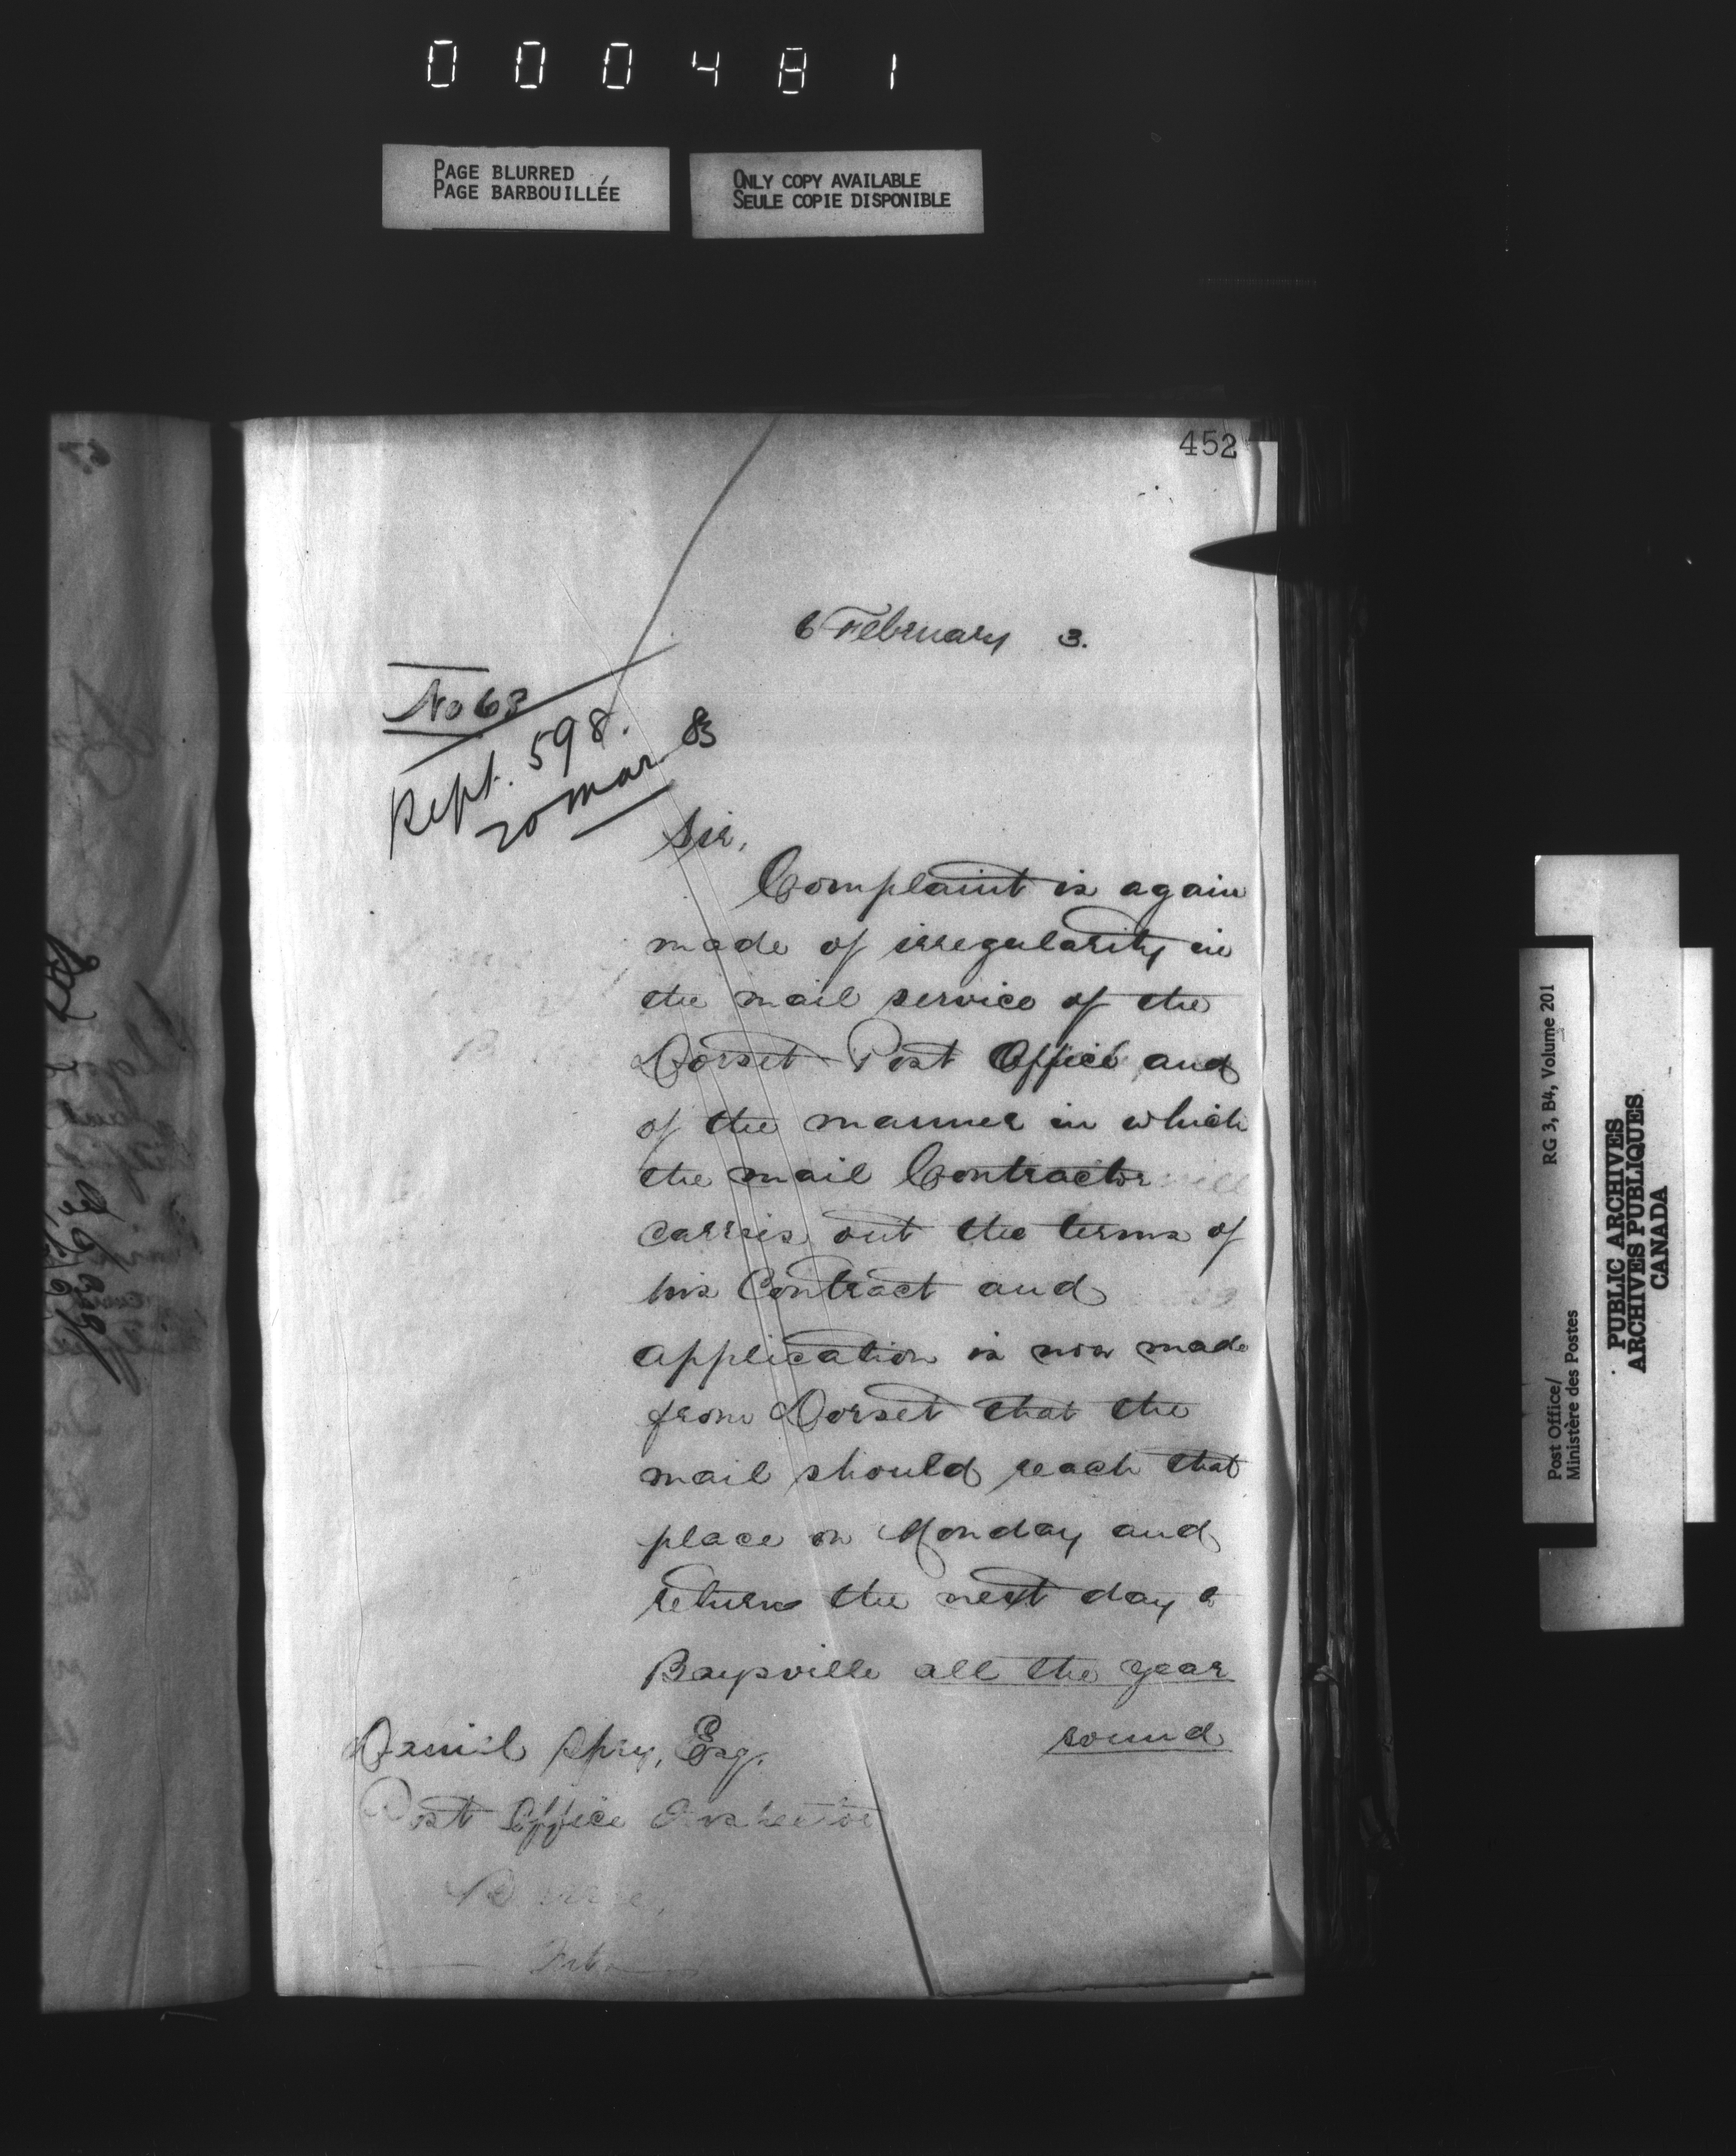 000481
PAGE BLURRED
PAGE BARBOUILLÉE
ONLY COPY AVAILABLE
SEULE COPIE DISPONIBLE
452
6 February 3.
No 63
Rept. 598.
20 Mar 83
Sir,
Complaint is again
made of irregularity in
the mail service of the
Dorset Post Office and
of the manner in which
the mail Contractor
carries out the terms of
his Contract and
application is now made
from Dorset that the
mail should reach that
place on Monday and
return the next day to
Baysville all the year
round
Daniel Spry, Esq.
Post Office Inspector
Barrie,
RG 3, B4, Volume 201
Post Office/
Ministère des Postes
PUBLIC ARCHIVES
ARCHIVES PUBLIQUES
CANADA